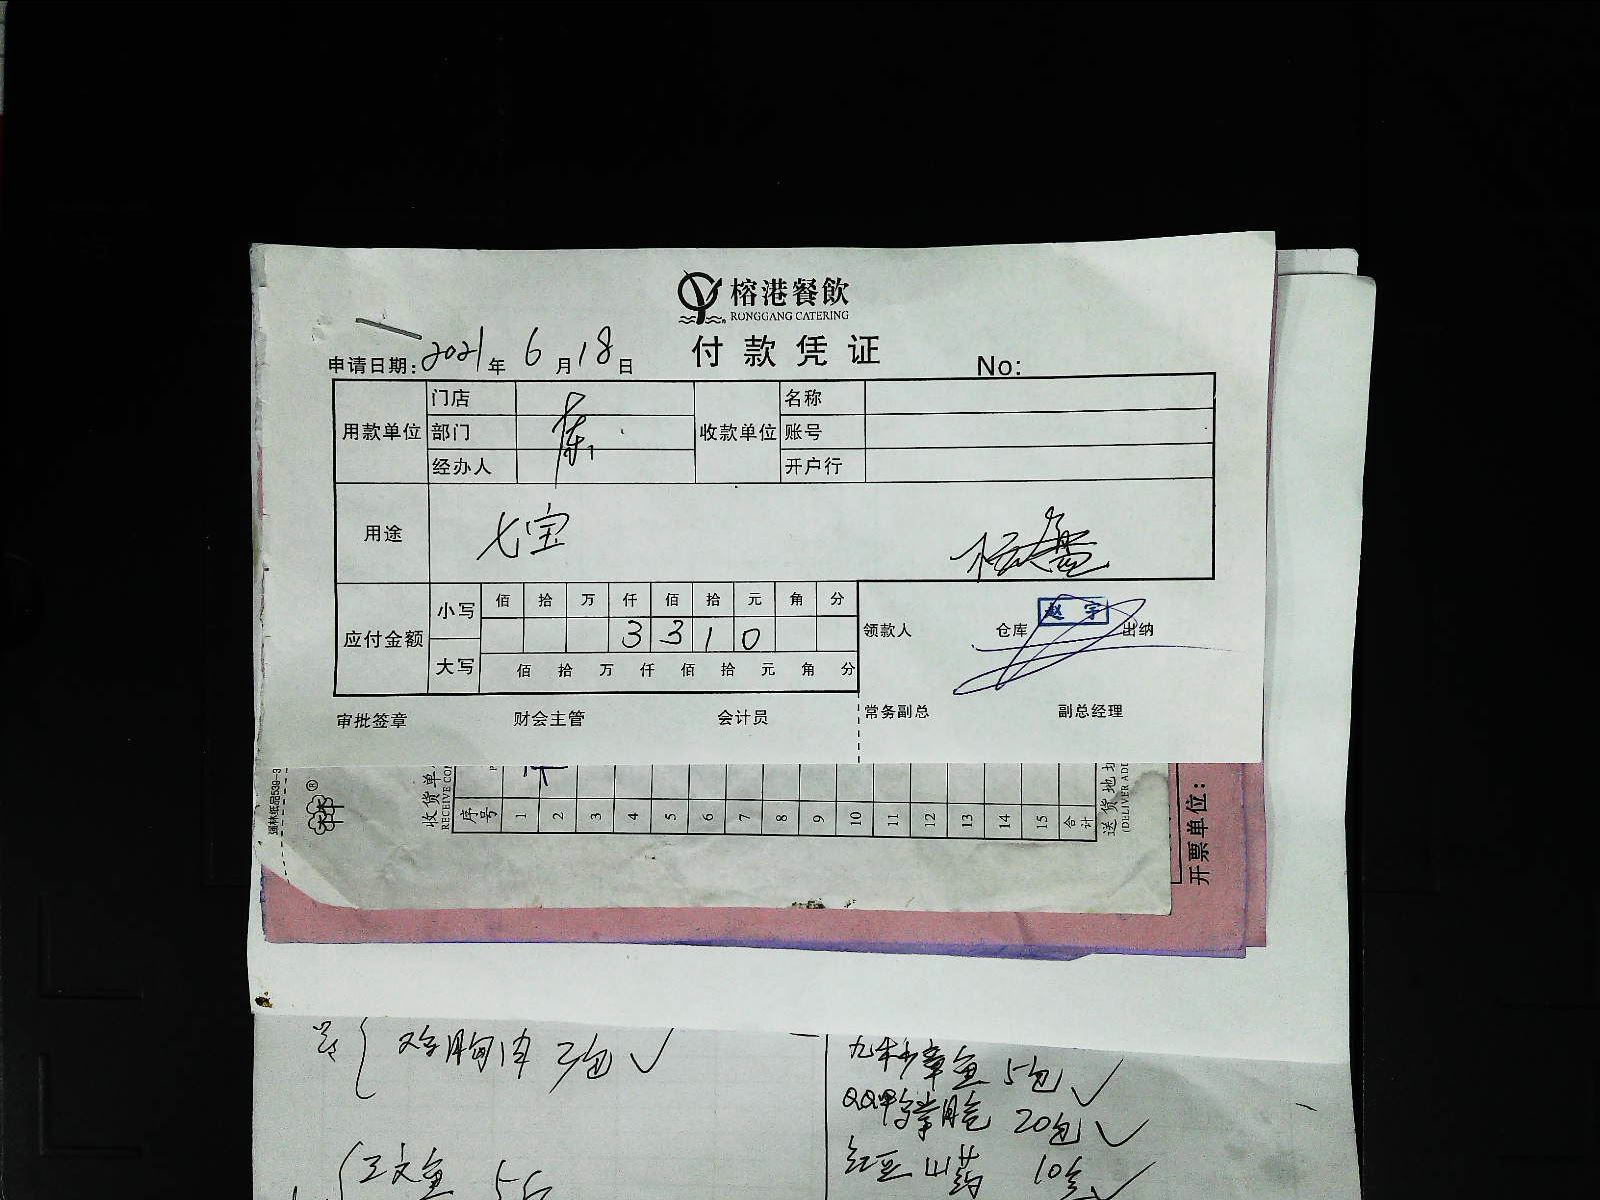 榕港餐飲
RONGGANG CATERING
付款凭证
申请日期: 2021 年 6 月 18 日 No:
用款单位 门店 收款单位 名称
部门 账号
经办人 开户行
用途 七宝
应付金额 小写 佰 拾 万 仟 佰 拾 元 角 分
3 3 1 0
大写 佰 拾 万 仟 佰 拾 元 角 分
领款人 仓库 赵宇 出纳
审批签章 财会主管 会计员 常务副总 副总经理
收货单
RECEIVE CO
序号 1 2 3 4 5 6 7 8 9 10 11 12 13 14 15 合计
送货地址
(DELIVER ADD
开票单位:
鸡胸肉 3包
章鱼 5包
QQ鸭掌 20包
红豆山药 10